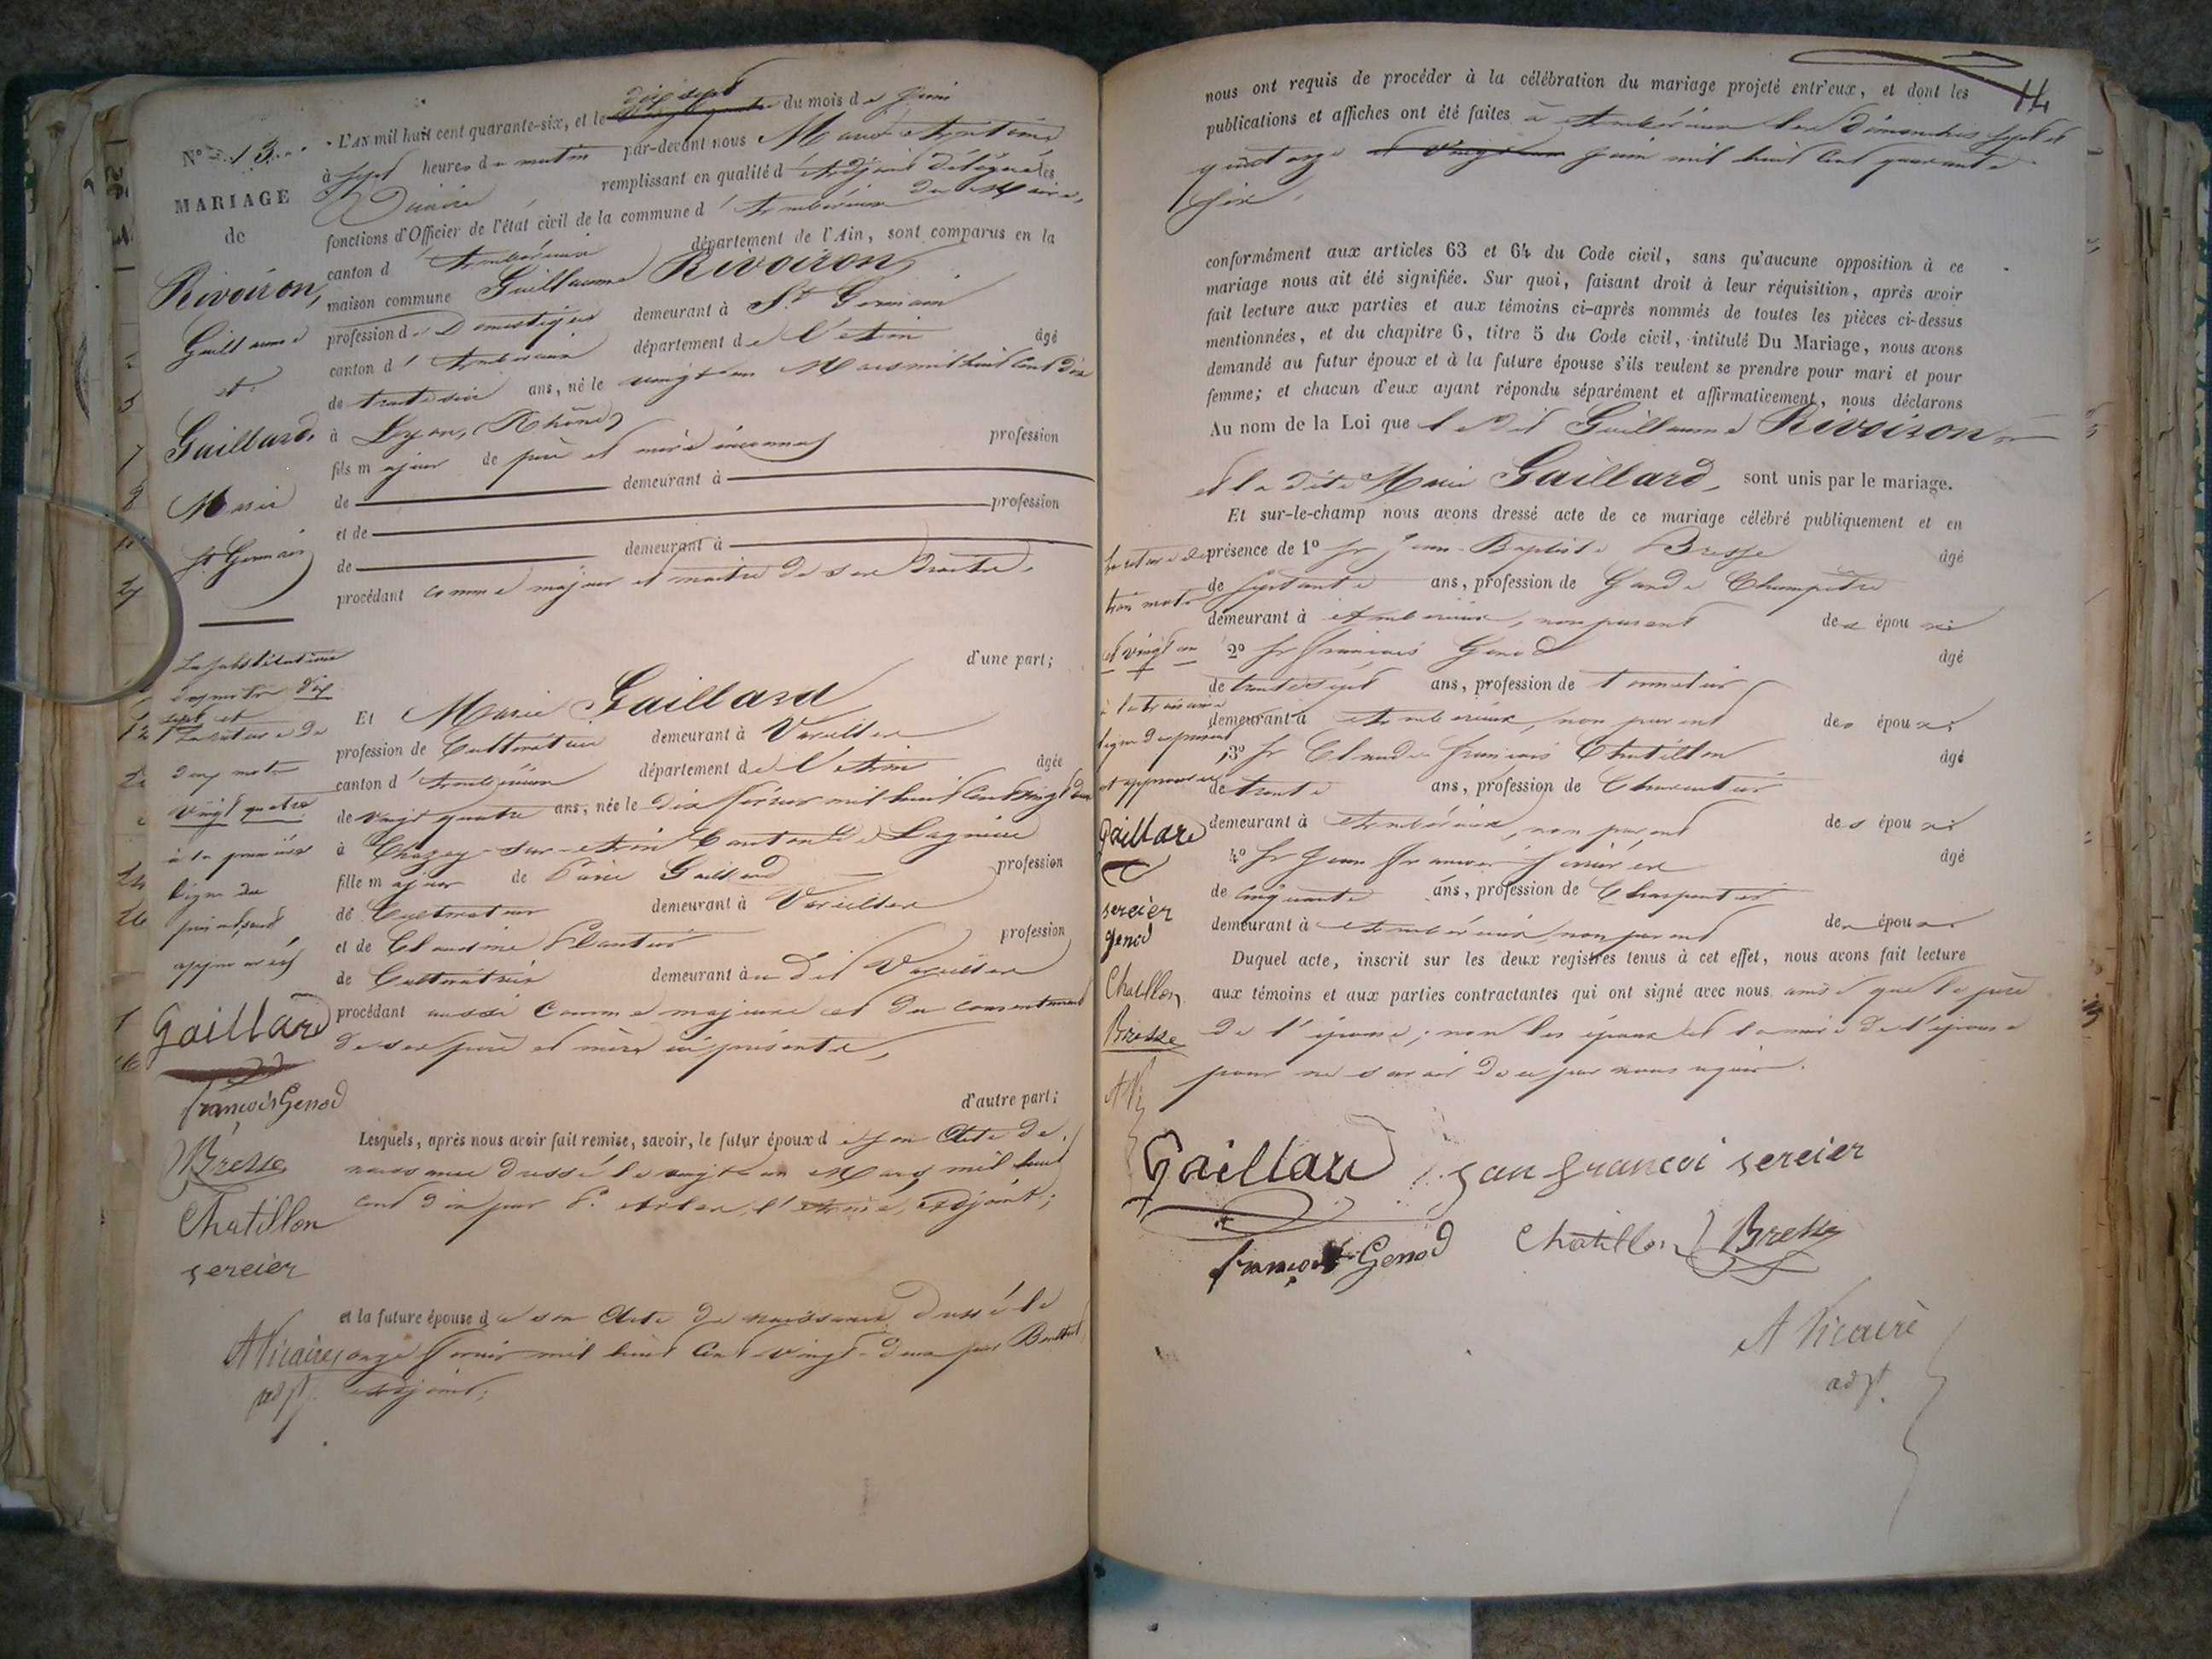 N° 13.
MARIAGE
de
Rivoiron,
Guillaume
et
Gaillard,
Marie
St Germain
La substitution
des mots dix
sept et
la rature de
deux mots
vingt quatre
à la première
ligne du
présent, sont
approuvés
Gaillard
françois Genod
Bresse
Chatillon
sereier
A Vicaire
adjt.
L'AN mil huit cent quarante-six, et le dix sept du mois de Juin
à sept heures du matin par-devant nous Marie Anthelme
Vicaire remplissant en qualité d'Adjoint délégué les
fonctions d'Officier de l'état civil de la commune d'Ambérieux du Maire,
canton d'Ambérieux département de l'Ain, sont comparus en la
maison commune Guillaume Rivoiron,
profession de Domestique demeurant à St Germain
canton d'Ambérieux département de l'Ain âgé
de trente six ans, né le vingt un Mars mil huit cent dix
à Lyon, (Rhône)
fils majeur de père et mère inconnus profession
de demeurant à
et de profession
de demeurant à
procédant comme majeur et maître de ses droits,
d'une part;
Et Marie Gaillard
profession de Cultivatrice demeurant à Vareilles
canton d'Ambérieux département de l'Ain âgée
de vingt quatre ans, née le dix février mil huit cent vingt deux
à Chazey-sur-Ain Canton de Lagnieu
fille majeur de Gaillard profession
de Cultivateur demeurant à Vareilles
et de Claudine Plantier profession
de Cultivatrice demeurant au dit Vareilles
procédant aussi comme majeure et du consentement
de ses père et mère ici présents,
d'autre part;
Lesquels, après nous avoir fait remise, savoir, le futur époux de son Acte de
naissance dressé le vingt un Mars mil huit
cent dix par Adjoint;
et la future épouse de son Acte de naissance dressé le
onze février mil huit cent vingt-deux par
Adjoint;
14
nous ont requis de procéder à la célébration du mariage projeté entr'eux, et dont les
publications et affiches ont été faites à Ambérieux les Dimanches sept et
quatorze et vingt un Juin mil huit cent quarante
six,
conformément aux articles 63 et 64 du Code civil, sans qu'aucune opposition à ce
mariage nous ait été signifiée. Sur quoi, faisant droit à leur réquisition, après avoir
fait lecture aux parties et aux témoins ci-après nommés de toutes les pièces ci-dessus
mentionnées, et du chapitre 6, titre 5 du Code civil, intitulé Du Mariage, nous avons
demandé au futur époux et à la future épouse s'ils veulent se prendre pour mari et pour
femme; et chacun d'eux ayant répondu séparément et affirmativement, nous déclarons
Au nom de la Loi que le dit Guillaume Rivoiron
et la dite Marie Gaillard, sont unis par le mariage.
Et sur-le-champ nous avons dressé acte de ce mariage célébré publiquement et en
présence de 1° Sr Jean-Baptiste Bresse âgé
de septante ans, profession de Garde Champêtre
demeurant à Ambérieux, non parent des époux
2° Sr François Genod âgé
de trente sept ans, profession de
demeurant à Ambérieux, non parent des époux
3° Sr Claude François Chatillon âgé
de trente ans, profession de Charpentier
demeurant à Ambérieux, non parent des époux
4° Sr Jean François âgé
de cinquante ans, profession de Charpentier
demeurant à Ambérieux, non parent des époux
Duquel acte, inscrit sur les deux registres tenus à cet effet, nous avons fait lecture
aux témoins et aux parties contractantes qui ont signé avec nous ainsi que le père
de l'épouse, non les époux et la mère de l'épouse
pour ne savoir de ce par nous requis.
La rature de
trois mots
et vingt un
à la troisième
ligne du présent
est approuvée
Gaillard
sereier
genod
Chatillon
Bresse
A Vi
Gaillard jan francoi sereier
françois Genod Chatillon Bresse
A Vicaire
adjt.